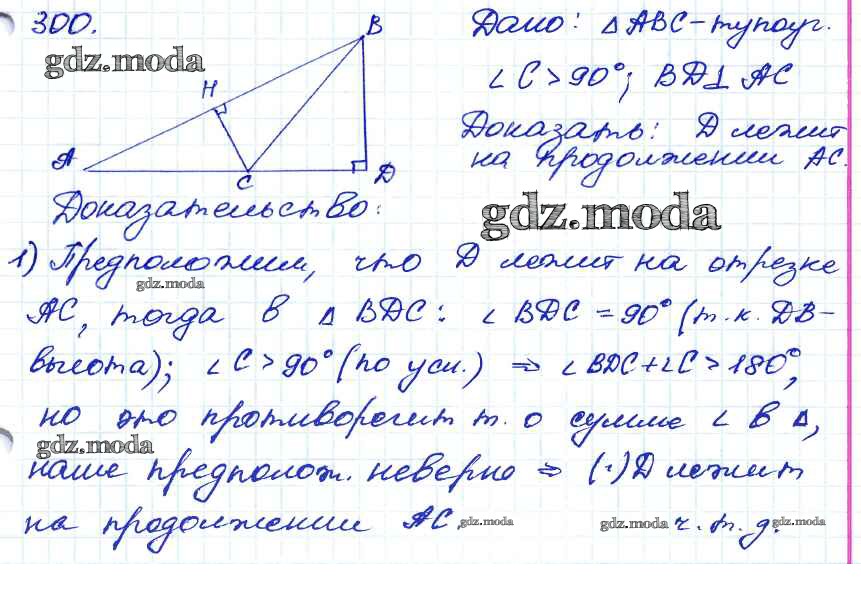 300.
gdz.moda
B
H
A
C
D
Дано: △ ABC – тупоуг.
∠ C > 90°; BD ⊥ AC
Доказать: D лежит
на продолжении AC.
Доказательство:
gdz.moda
1) Предположим, что D лежит на отрезке
gdz.moda
AC, тогда в △ BDC: ∠ BDC = 90° (т.к. DB-
высота); ∠ C > 90° (по усл.) ⇒ ∠ BDC + ∠ C > 180°,
но это противоречит т. о сумме ∠ в △,
gdz.moda
наше предполож. неверно ⇒ (·) D лежит
на продолжении AC. gdz.moda gdz.moda ч.т.д. gdz.moda